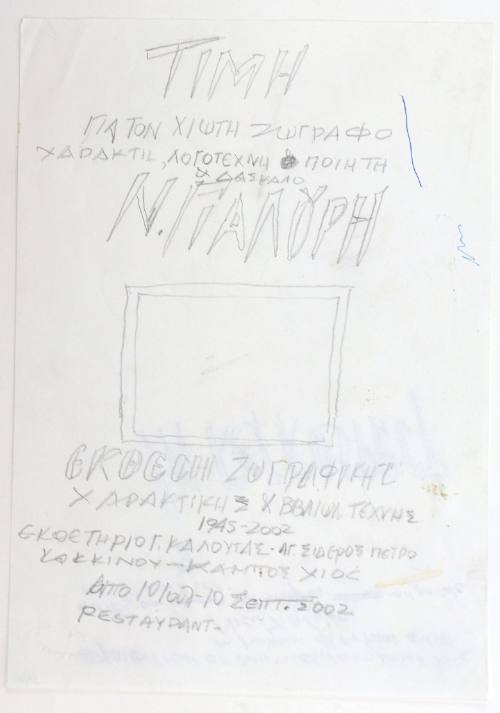 ΤΙΜΗ
ΓΙΑ ΤΟΝ ΧΙΩΤΗ ΖΩΓΡΑΦΟ
ΧΑΡΑΚΤΗ, ΛΟΓΟΤΕΧΝΗ ΠΟΙΗΤΗ
& ΔΑΣΚΑΛΟ
Ν. ΓΙΑΛΟΥΡΗ
ΕΚΘΕΣΗ ΖΩΓΡΑΦΙΚΗΣ
ΧΑΡΑΚΤΙΚΗΣ & ΒΒΛΙΟΥ ΤΕΧΝΗΣ
1945-2002
ΕΚΘΕΤΗΡΙΟ Γ. ΚΑΛΟΥΤΑΣ - ΑΓ. ΣΙΔΕΡΟΣ ΠΕΤΡΟ
ΚΟΚΚΙΝΟΥ - ΚΑΜΠΟΣ ΧΙΟΣ
Από 10 Ιουλ-10 Σεπτ. 2002
ΡΕSΤΑΥΡΑΝΤ-